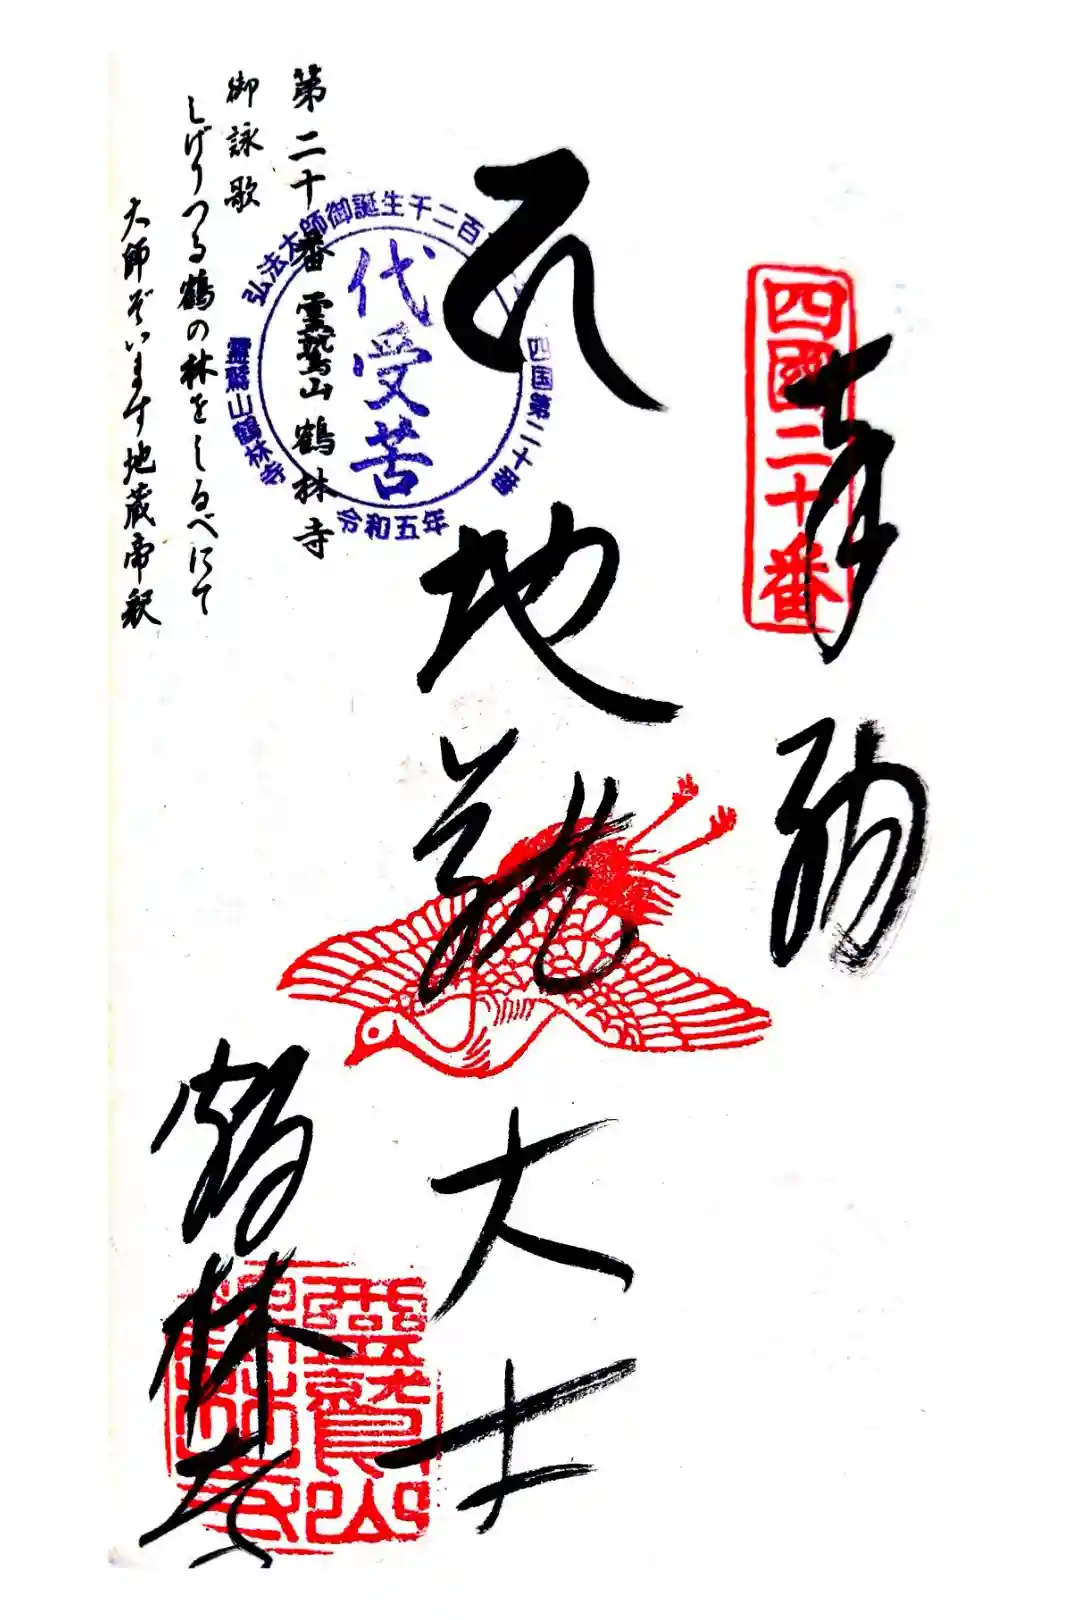 四國二十番
奉納
地蔵大士
鶴林寺
靈鷲山
鶴林寺
弘法大師御誕生千二百
四国第二十番
令和五年
靈鷲山鶴林寺
代受苦
第二十番 霊鷲山 鶴林寺
御詠歌
しげりつる鶴の林をしるべにて
大師ぞいます地蔵帝釈